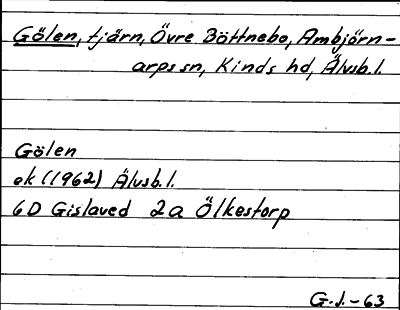 Gölen, tjärn, Övre Böttnebo, Ambjörn-
arps sn, Kinds hd, Älvsb.l.
Gölen
ek (1962) Älvsb.l.
6D Gislaved 2a Ölkestorp
G.J.-63